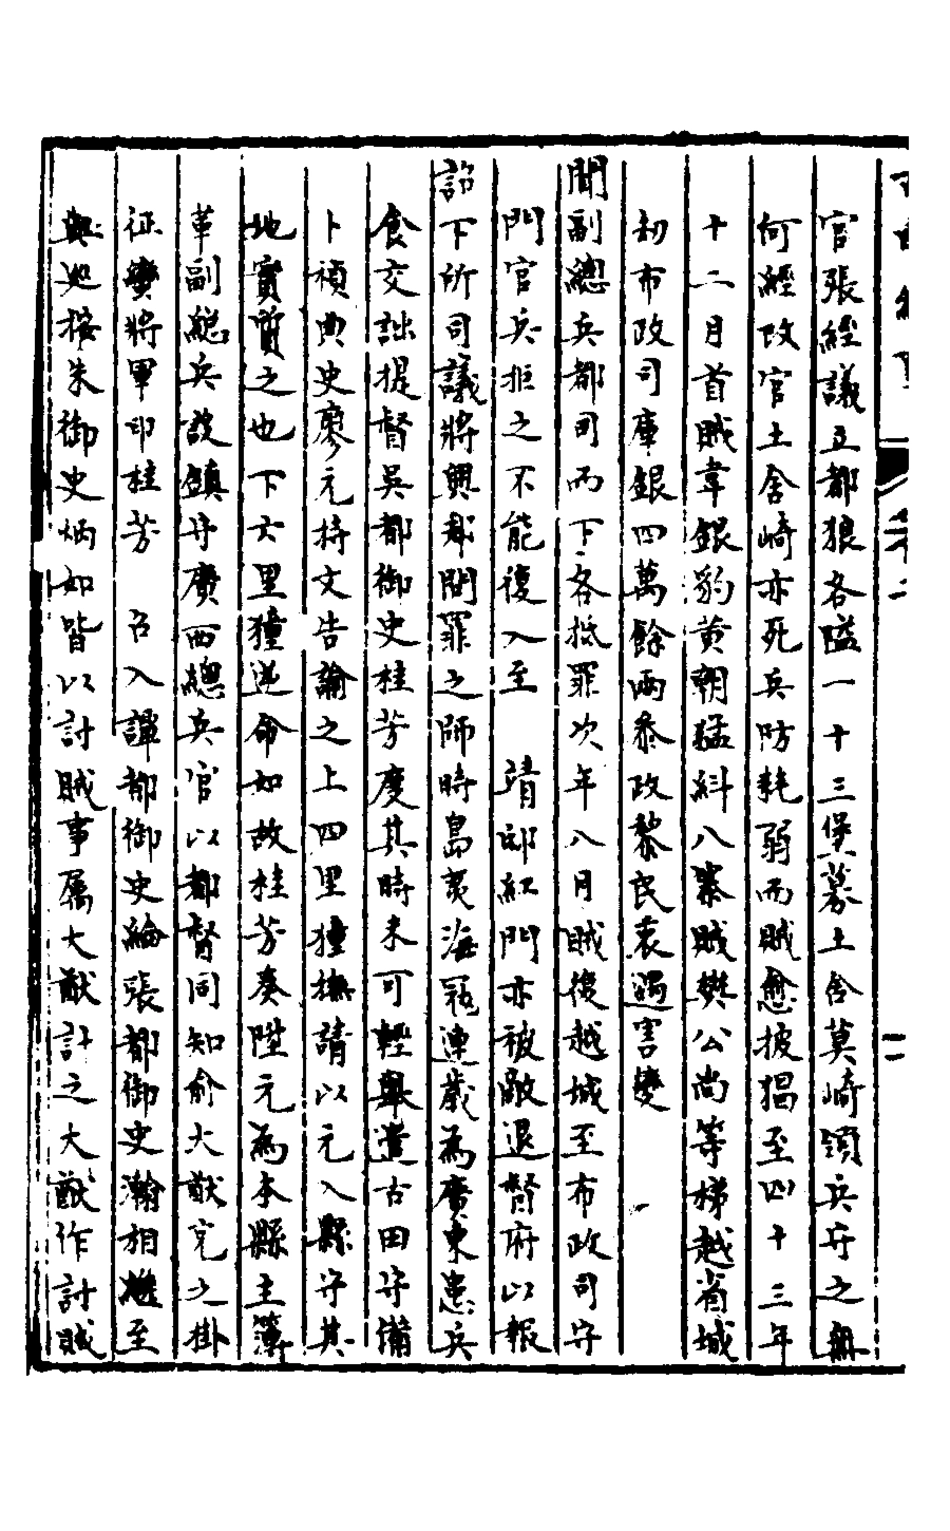 官張經議立都狼各隘一十三堡募土舍莫崎領兵守之無
何經改官土舍崎亦死兵防耗弱而賊愈披猖至四十三年
十二月首賊韋銀豹黃朝猛糾八寨賊樊公尚等梯越省城
刧布政司庫銀四萬餘兩叅政黎民衷遇害變
聞副總兵都司而下各抵罪次年八月賊復越城至布政司守
門官兵拒之不能復入至 靖邸紅門亦被敵退督府以報
詔下所司議將興都問罪之師時島夷海冦連歲為廣東患兵
食交詘提督吳都御史桂芳度其時未可輕舉遣古田守備
卜禎典史廖元持文告諭之上四里獞撫請以元入縣守其
地實質之也下六里獞逆命如故桂芳奏陞元為本縣主簿
革副總兵設鎮守廣西總兵官以都督同知俞大猷充之掛
征蠻將軍印桂芳 召入譚都御史綸張都御史瀚相繼至
與廵按朱御史炳如皆以討賊事属大猷計之大猷作討賊